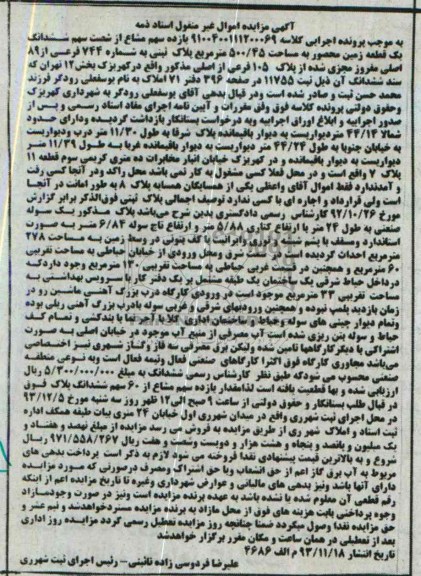 آگهی مزایده اموال غیر منقول اسناد ذمه
به موجب پرونده اجرایی کلاسه ۹۱۰۰۴۰۰۱۱۱۲۰۰۰۶۹ یازده سهم مشاع از شصت سهم ششدانگ
یک قطعه زمین محصور به مساحت ۵۰۰/۴۵ مترمربع پلاک ثبتی به شماره ۷۴۴ فرعی از ۸۹
اصلی مفروز مجزی شده از پلاک ۱۰۵ فرعی از اصلی مذکور واقع در کهریزک بخش ۱۲ تهران که
سند ششدانگ آن ذیل ثبت ۱۱۷۵۵ در صفحه ۳۹۶ دفتر ۷۱ املاک به نام یوسفعلی رودگر فرزند
محمد حسن ثبت و صادر شده است ودر قبال بازده آقای یوسفعلی رودگر به شهرداری کهریزک
و حقوق دولتی پرونده کلاسه فوق وفق مقررات و آیین نامه اجرای مفاد اسناد رسمی و پس از
صدور اجراییه و ابلاغ اوراق اجراییه وبه درخواست بستانکار بازداشت گردیده ودارای حدود
شمالا ۴۴/۱۴ متر دیواریست به دیوار باقیمانده پلاک شرقا به طول ۱۱/۳۰ متر درب ودیواریست
به خیابان جنوبا به طول ۴۴/۲۴ متر دیواریست به دیوار باقیمانده غربا به طول ۱۱/۳۹ متر
دیواریست به دیوار باقیمانده و در کهریزک خیابان انبار مخابرات ده متری کریمی سوم قطعه ۱۱
پلاک ۷ واقع است و در محل فعلا کسی مشغول به کار نمی باشد محل راکد ودر آنجا کسی رفت
و آمدندارد فقط اموال آقای واعظی یکی از همسایگان همسایه پلاک ۸ به طور امانت در آنجا
است ولی قرارداد و اجاره ای با کسی ندارد توصیف اجمالی پلاک ثبتی فوق الذکر برابر گزارش
مورخ ۹۲/۱۰/۲۶ کارشناس رسمی دادگستری بدین شرح می باشد پلاک مذکور یک سوله
صنعتی به طول ۲۴ متر با ارتفاع کناری ۵/۸۸ متر و ارتفاع تاج سوله ۶/۸۴ متر به صورت
استاندارد ومسقف با پشم شیشه و توری وایرانیت با کف بتونی در وسط زمین به مساحت ۲۷۸
مترمربع احداث گردیده است در سمت شرق ومحل ورودی از خیابان حیاطی به مساحت تقریبی
۶۰ مترمربع و همچنین در قسمت غربی حیاطی به مساحت تقریبی ۱۳۰ مترمربع وجود دارد که
درداخل حیاط شرقی یک ساختمان یک طبقه مشتمل بر یک دفتر کار با سرویس بهداشتی به
مساحت تقریبی ۳۳ مترمربع موجود است در ورودی کارگاه درب بزرگ آهنی ماشین رو در
زمان بازدید پلمب نبوده و همچنین ورودیهای شرقی و غربی سوله با درب بزرگ آهنی ریلی بوده
وتمام دیوار چینی های سوله و حیاط و ساختمان اداری کلا با آجر نما با بندکشی و تمام کف
حیاط و سوله بتن ریزی شده است آب مصرفی از منبع آب موجود در خیابان اصلی به صورت
اشتراکی با دیگر کارگاهها تامین شده ولیکن برق مصرفی سه فاز و گاز شهری نیز اختصاصی
می باشد مجاوری کارگاه فوق اکثرا کارگاههای صنعتی فعال ونیمه فعال است وبه نوعی منطقه
صنعتی محسوب می شود که طبق نظر کارشناس رسمی ششدانگ به مبلغ ۵/۳۰۰/۰۰۰/۰۰۰ ریال
ارزیابی شده و بها قطعیت یافته است لذا مقدار یازده سهم مشاع از ۶۰ سهم ششدانگ پلاک فوق
در قبال طلب بستانکار و حقوق دولتی از ساعت ۹ صبح الی ۱۲ ظهر روز سه شنبه مورخ ۹۳/۱۲/۵
در محل اجرای ثبت شهرری واقع در میدان شهرری اول خیابان ۲۴ متری بیات طبقه همکف اداره
ثبت اسناد و املاک شهر ری از طریق مزایده به فروش می رسد مزایده از مبلغ نهصد و هفتاد و
یک میلیون و پانصد و پنجاه و هشت هزار و دویست وشصت و هفت ریال ۹۷۱/۵۵۸/۲۶۷ ریال
شروع و به بالاترین قیمت پیشنهادی نقدا فروخته می شود لازم به ذکر است پرداخت بدهی های
مربوط به آب برق گاز اعم از حق انشعاب ویا حق اشتراک ومصرف درصورتی که مورد مزایده
دارای آنها باشد ونیز بدهی های مالیاتی و عوارض شهرداری وغیره تا تاریخ مزایده اعم از اینکه
رقم قطعی آن معلوم شده یا نشده باشد به عهده برنده مزایده است ونیز در صورت وجودمازاد
وجوه پرداختی بابت هزینه های فوق از محل مازاد به برنده مزایده مسترد خواهدشد و نیم عشر و
حق مزایده نقدا وصول میگردد ضمنا چنانچه روز مزایده تعطیل رسمی گردد مزایده روز اداری
بعد از تعطیلی در همان ساعت و مکان مقرر برگزار خواهدشد
تاریخ انتشار ۹۳/۱۱/۱۸ م الف ۴۶۸۶
علیرضا فردوسی زاده نائینی – رئیس اجرای ثبت شهرری